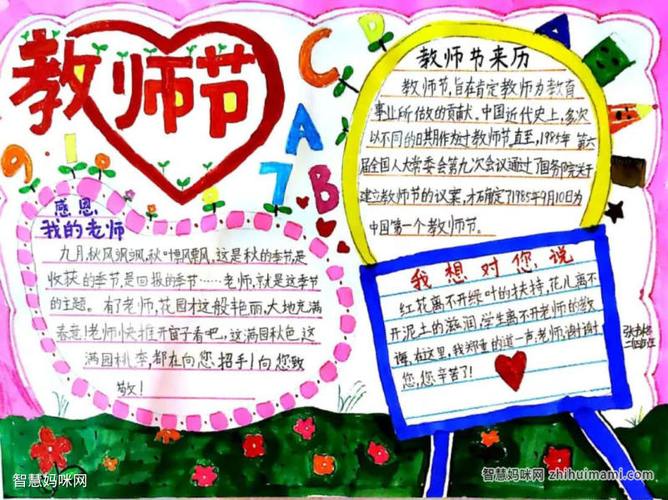 教师节
C
D
A
A
B
9
1
0
7
感恩
我的老师
九月,秋风飒飒,秋叶飘飘,这是秋的季节,是
收获的季节,是回报的季节……老师,就是这季节
的主题。有了老师,花园才这般艳丽,大地充满
春意!老师快推开窗子看吧,这满园秋色,这
满园桃李,都在向您招手!向您致
敬!
教师节来历
教师节,旨在肯定教师为教育
事业所做的贡献。中国近代史上,多次
以不同的日期作为过教师节。直至,1985年第六
届全国人大常委会第九次会议通过了国务院关于
建立教师节的议案,才确定了1985年9月10日为
中国第一个教师节。
我想对您说
红花离不开绿叶的扶持,花儿离不
开泥土的滋润,学生离不开老师的教
诲,在这里,我郑重的道一声:老师,谢谢
您,您辛苦了!
智慧妈咪网
智慧妈咪网 zhihuimami.com